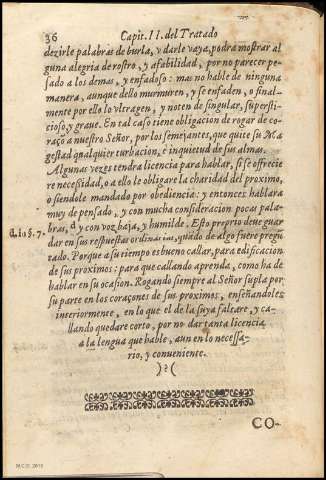 36 Capit. II. del Tratado
dezirle palabras de burla, y darle vaya, podra mostrar al
guna alegria de rostro, y afabilidad, por no parecer pe-
sado a los demas, y enfadoso: mas no hable de ninguna
manera, aunque dello murmuren, y se enfaden, o final-
mente por ello lo vltragen, y noten de singular, supersti-
cioso, y graue. En tal caso tiene obligacion de rogar de co-
raçõ a nuestro Señor, por los semejantes, que quite su Ma
gestad qualquier turbacion, è inquietud de sus almas.
Algunas vezes tendra licencia para hablar, si se offrecie
re necessidad, o a ello le obligare la charidad del proximo,
o siendole mandado por obediencia: y entonces hablara
muy de pensado, y con mucha consideracion pocas pala-
bras, d y con voz baja, y humilde. Esto proprio deue guar
d. Lio §. 7.
dar en sus respuestas ordinarias, quãdo de algo fuere pregũ
tado. Porque a su tiempo es bueno callar, para edificacion
de sus proximos: para que callando aprenda, como ha de
hablar en su ocasion. Rogando siempre al Señor supla por
su parte en los coraçones de sus proximos, enseñandoles
interiormente, en lo que el de la suya faltare, y ca-
llando quedare corto, por no dar tanta licencia
a la lengua que hable, aun en lo necessa-
rio, y conueniente.
)?(
CO-